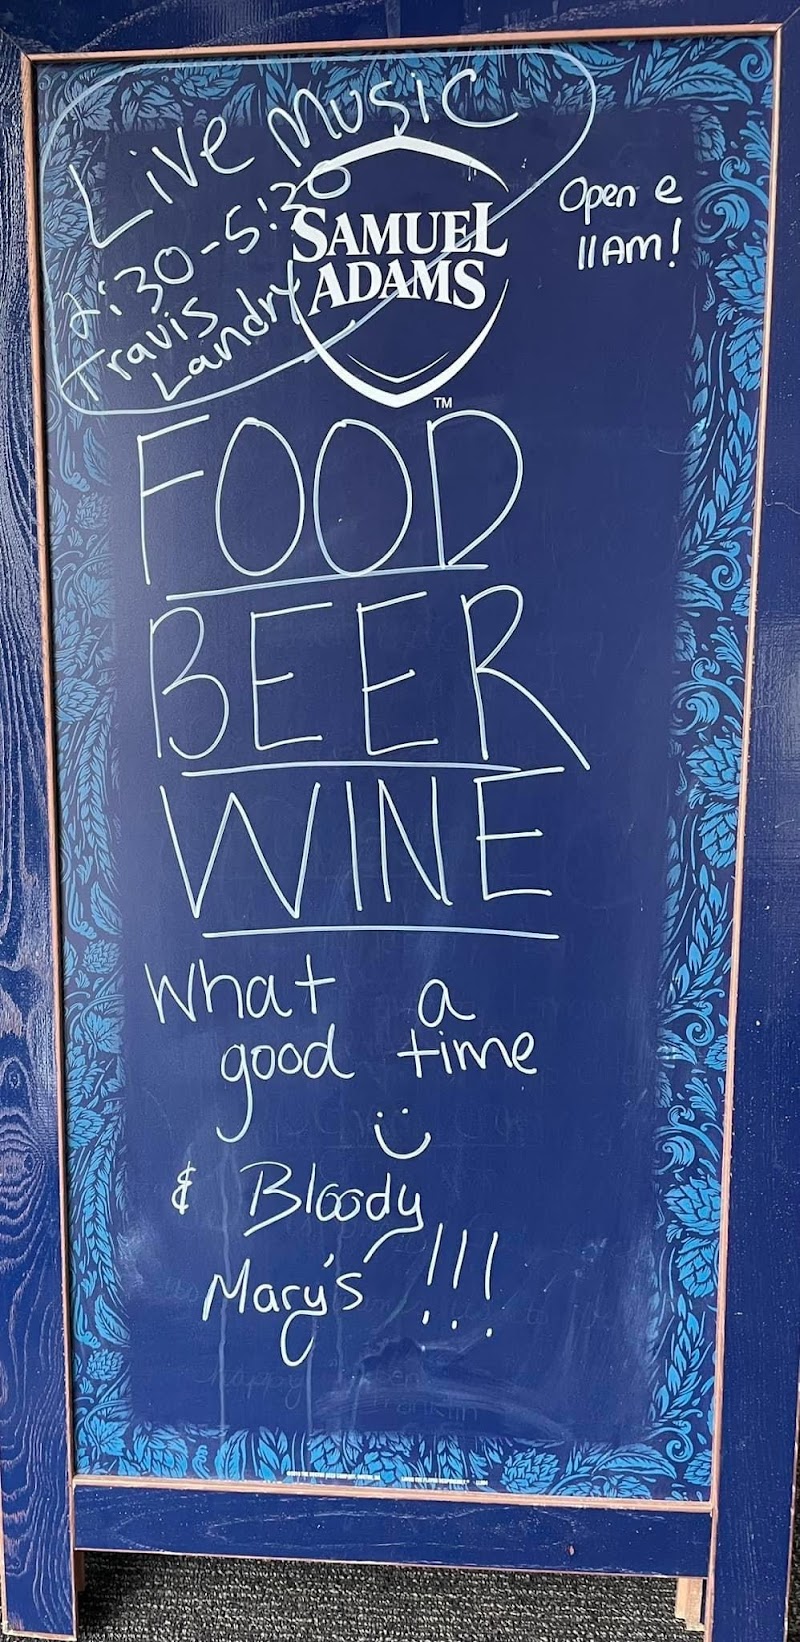 Live Music
2:30-5:30
Travis
Landry
SAMUEL
ADAMS
TM
Open e
11AM!
FOOD
BEER
WINE
What a
good time
& Bloody
Mary's !!!